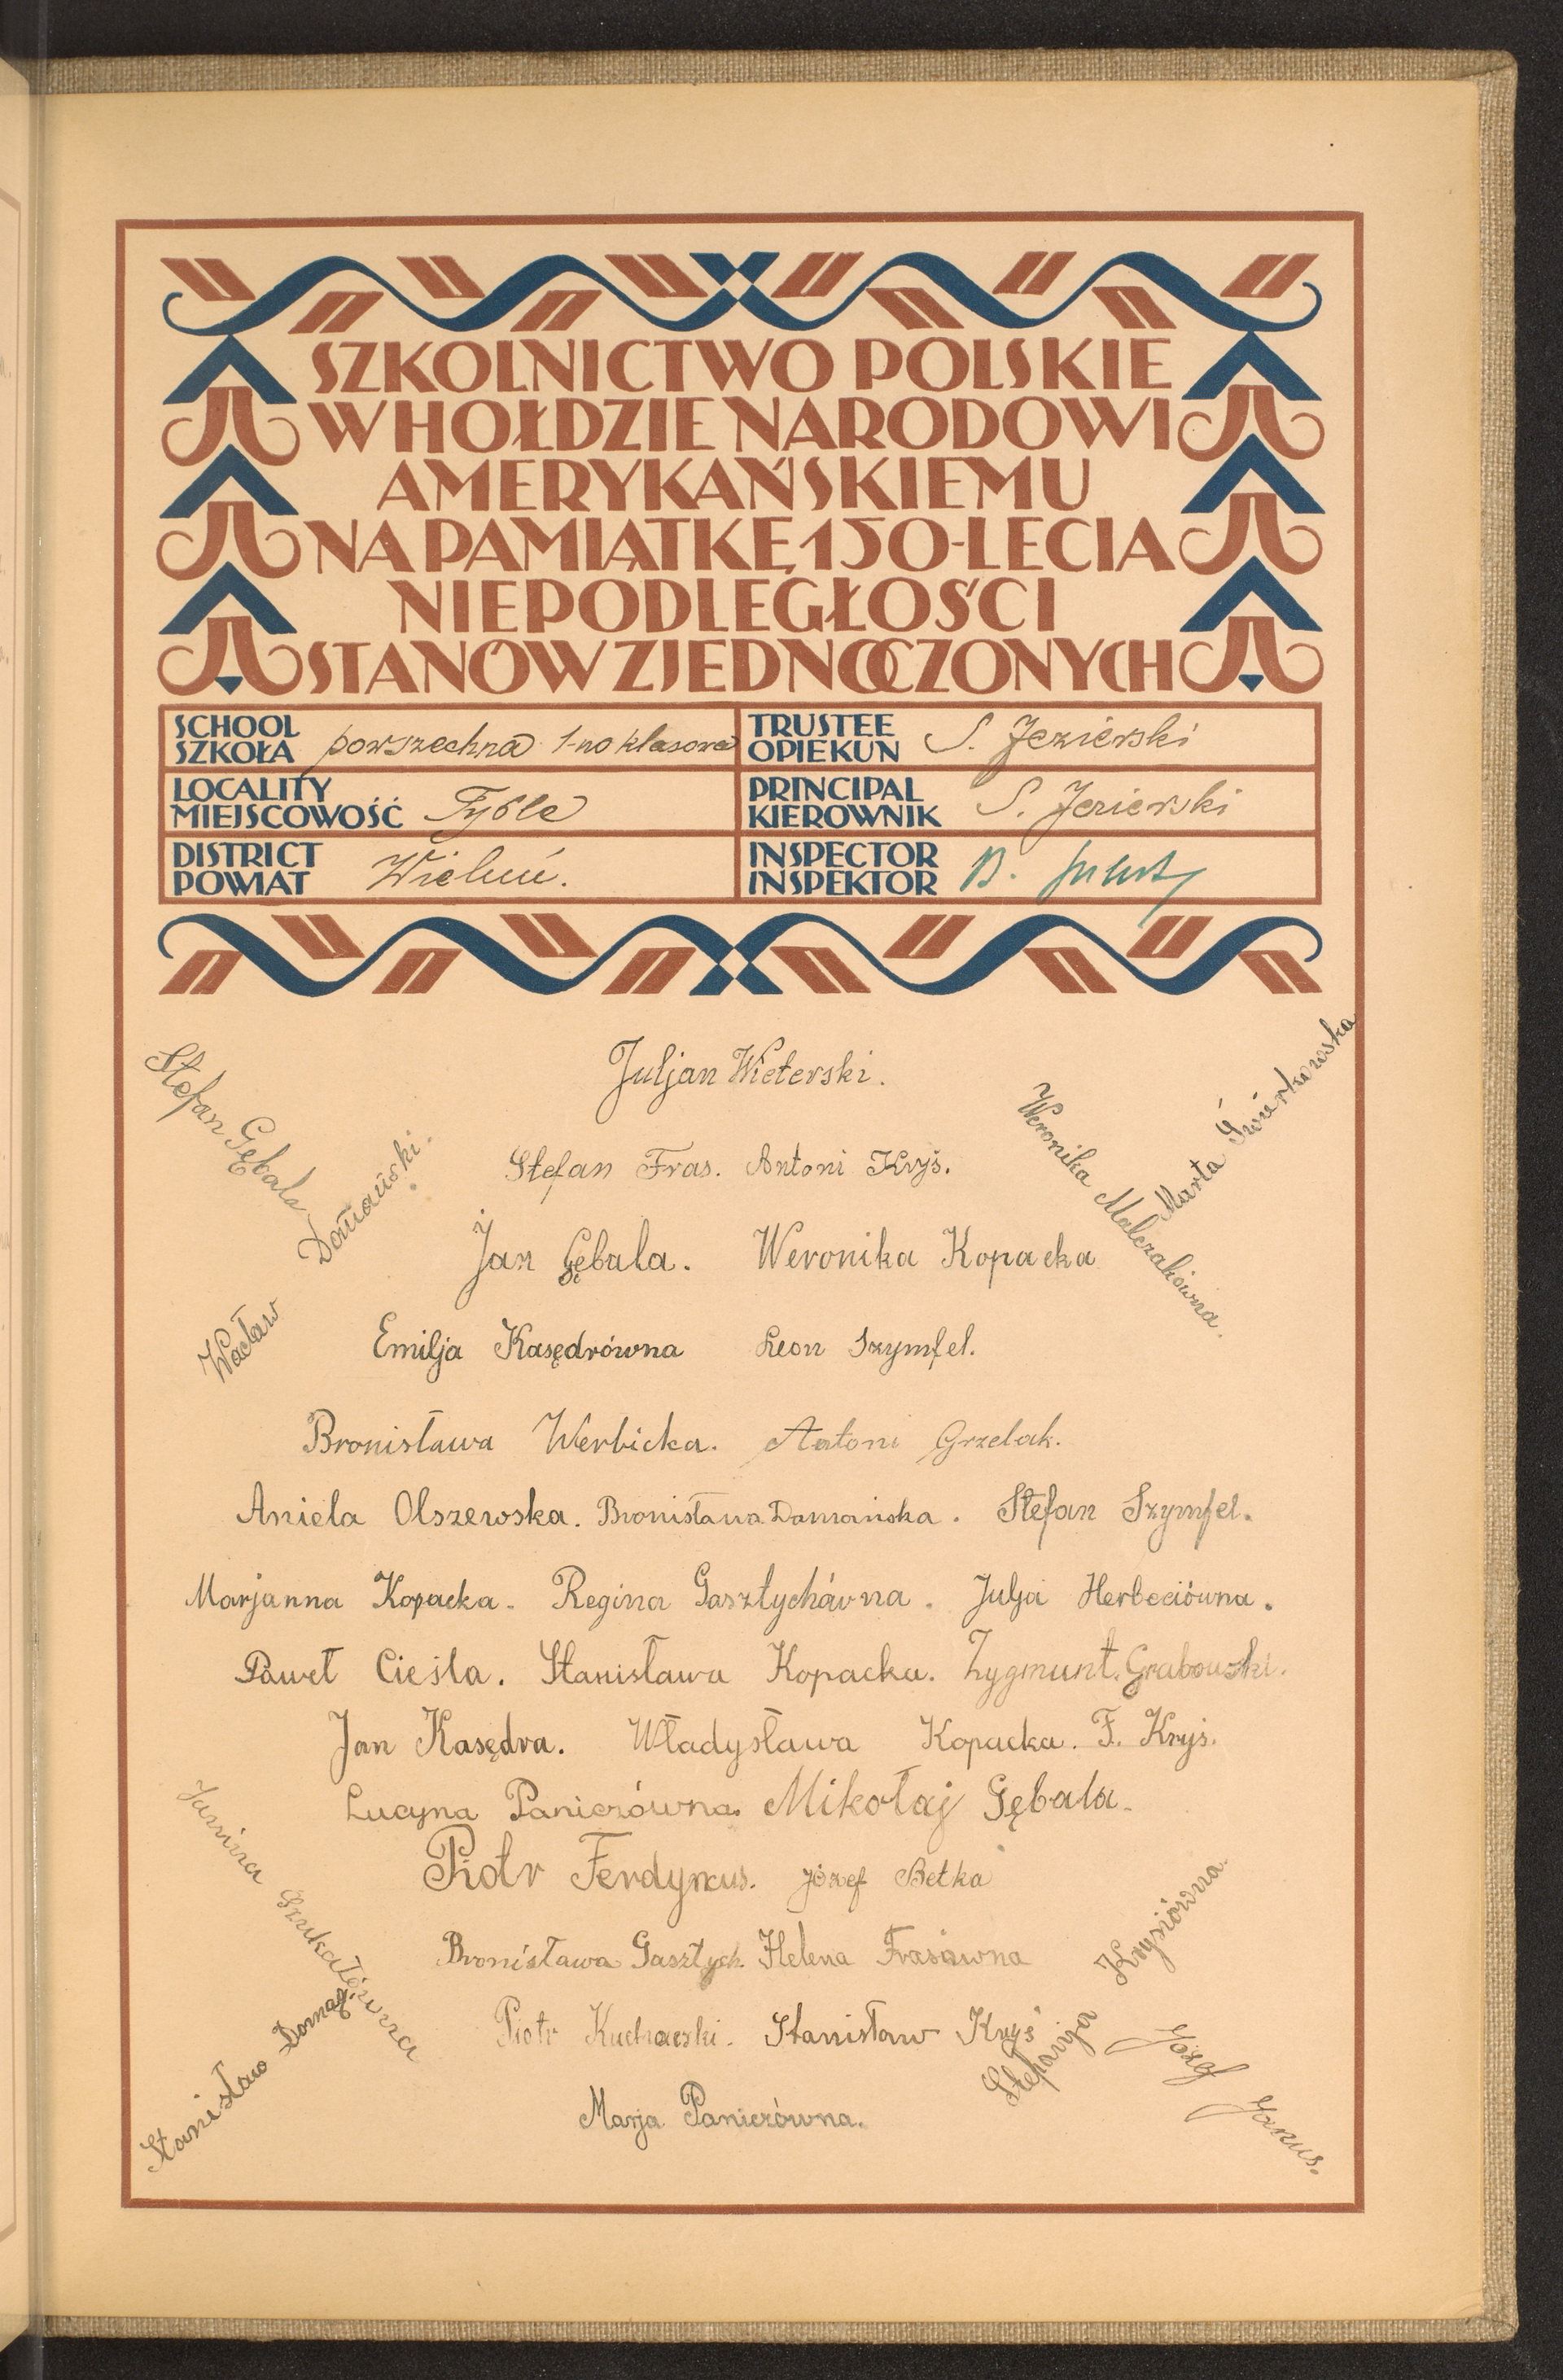 SZKOLNICTWO POLSKIE
W HOŁDZIE NARODOWI
AMERYKAŃSKIEMU
NA PAMIĄTKĘ 150-LECIA
NIEPODLEGŁOŚCI
STANÓW ZJEDNOCZONYCH
SCHOOL
SZKOŁA powszechna 1-no klasowa
TRUSTEE
OPIEKUN S. Jezierski
LOCALITY
MIEJSCOWOŚĆ Tyble
PRINCIPAL
KIEROWNIK S. Jezierski
DISTRICT
POWIAT Wieluń.
INSPECTOR
INSPEKTOR B.
Juljan Wieterski.
Stefan Gębala
Wacław Domański.
Weronika Malczakówna.
Marta Świerkowska
Stefan Fras. Antoni Kryś.
Jan Gębala. Weronika Kopacka
Emilja Kasędrówna Leon Szymfel.
Bronisława Werbicka. Antoni Grzelak.
Aniela Olszewska. Bronisława Domańska. Stefan Szymfel.
Marjanna Kopacka. Regina Gasztychówna. Julja Herbeciówna.
Paweł Cieśla. Stanisława Kopacka. Zygmunt Grabowski.
Jan Kasędra. Władysława Kopacka. F. Kryś.
Lucyna Panierówna. Mikołaj Gębala.
Piotr Ferdynus. Józef Betka
Bronisława Gasztych. Helena Frasówna
Piotr Kucharski. Stanisław Kryś
Marja Panierówna.
Janina Szukatówna
Stanisław Domag.
Stefanja Krysiówna.
Józef Janus.